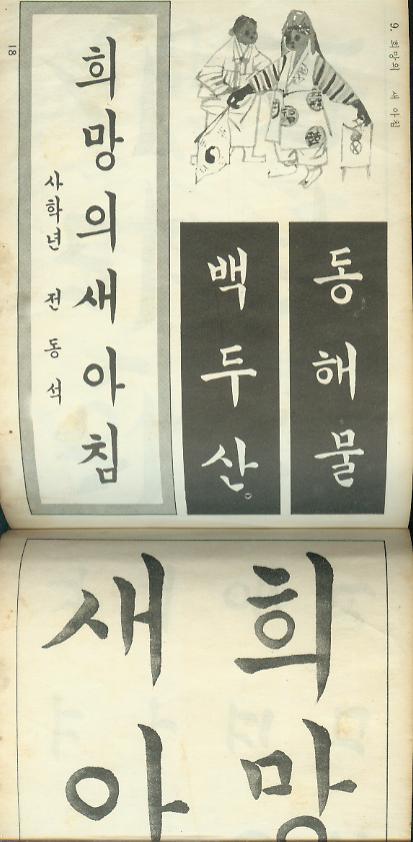 9. 희망의 새 아침
동해물
백두산。
희망의새아침
사학년 전동석
18
희망
새아